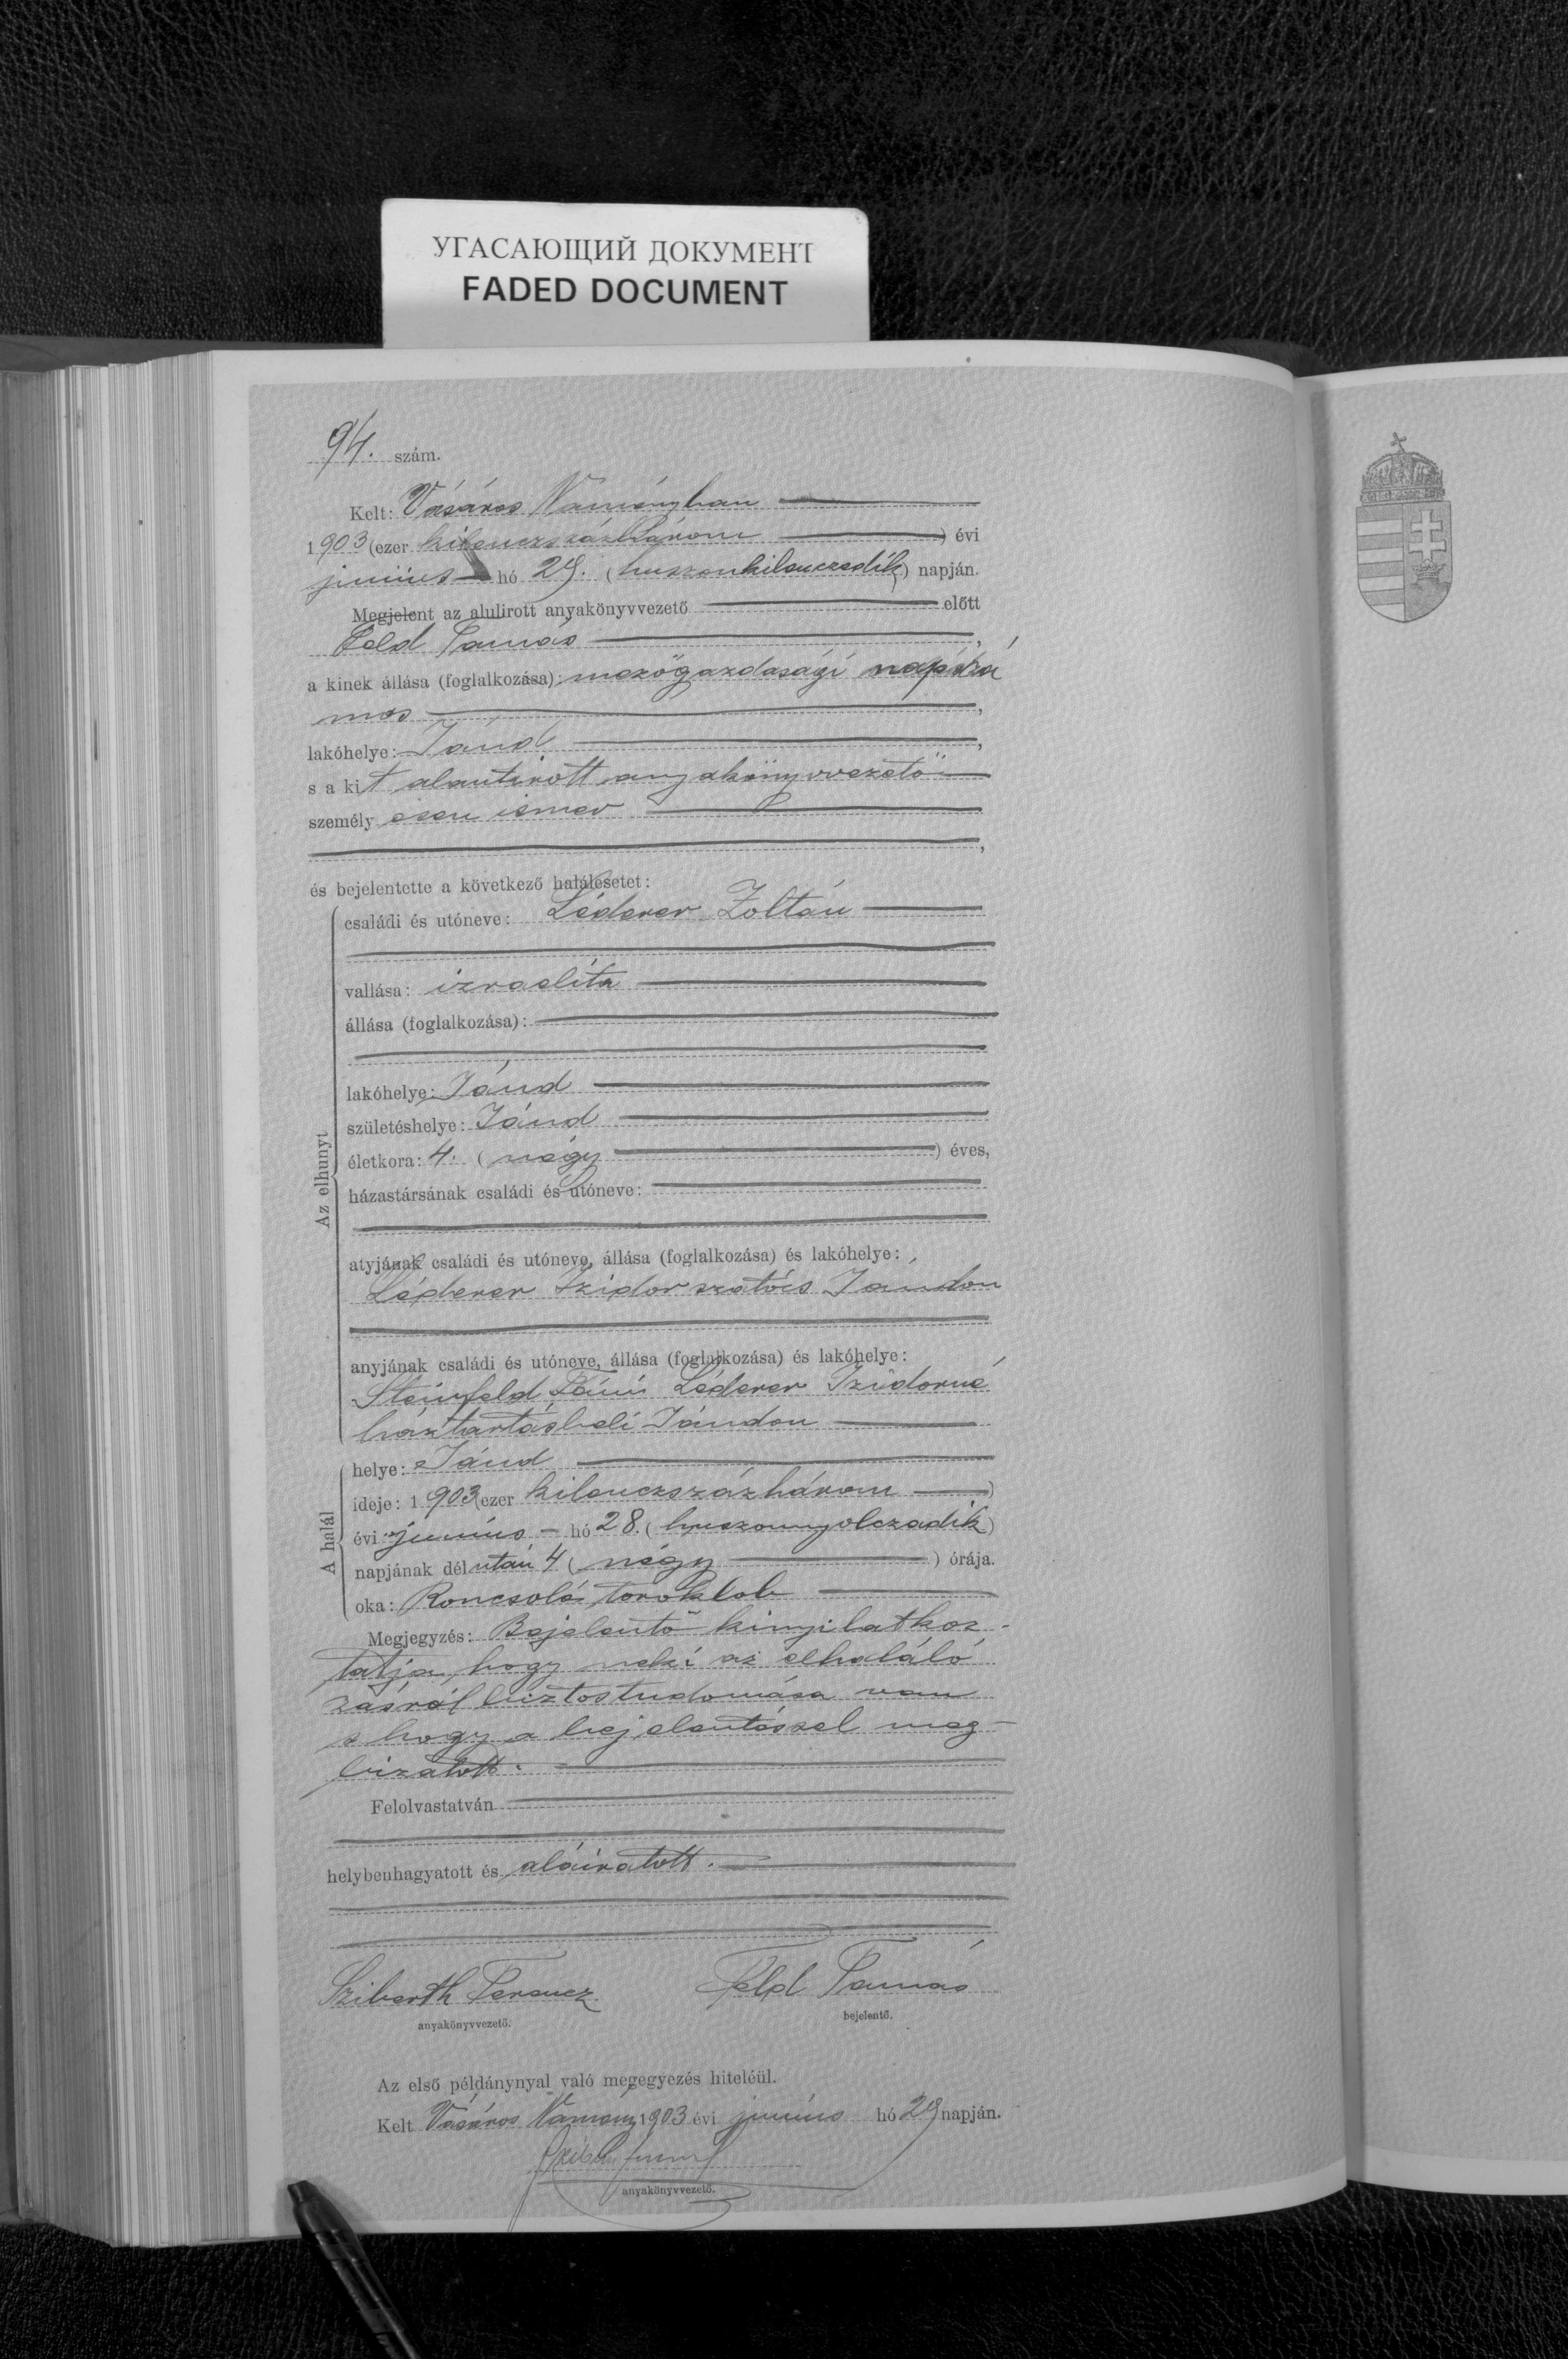 УГАСАЮЩИЙ ДОКУМЕНТ
FADED DOCUMENT
94. szám.
Kelt: Vásáros Naményban
1903 (ezer kilenczszázhárom) évi
junius hó 29. (huszonkilenczedik) napján.
Megjelent az alulirott anyakönyvvezető előtt
Feld Tamás,
a kinek állása (foglalkozása): mezőgazdasági napszá
mos,
lakóhelye: Jánd,
s a kit alantirott anyakönyvvezető
személyesen ismer
,
és bejelentette a következő halálesetet:
Az elhunyt
családi és utóneve: Léderer Zoltán
vallása: izraelita
állása (foglalkozása):
lakóhelye: Jánd
születéshelye: Jánd
életkora: 4. (négy) éves,
házastársának családi és utóneve:
atyjának családi és utóneve, állása (foglalkozása) és lakóhelye:
Léderer Izidor szatócs Jándon
anyjának családi és utóneve, állása (foglalkozása) és lakóhelye:
Steinfeld Fáni Léderer Izidorné
háztartásbeli Jándon
A halál
helye: Jánd
ideje: 1903 (ezer kilenczszázhárom)
évi junius hó 28. (huszonnyolczadik)
napjának délután 4 (négy) órája.
oka: Roncsoló toroklob
Megjegyzés: Bejelentő kinyilatkoz-
tatja, hogy neki az elhaláló
zásról biztos tudomása van
s hogy a bejelentéssel meg-
bizatott.
Felolvastatván
helybenhagyatott és aláiratott.
Sziberth Ferencz
anyakönyvvezető.
Feld Tamás
bejelentő.
Az első példánynyal való megegyezés hiteléül.
Kelt Vásáros Namény 1903 évi junius hó 29 napján.
anyakönyvvezető.